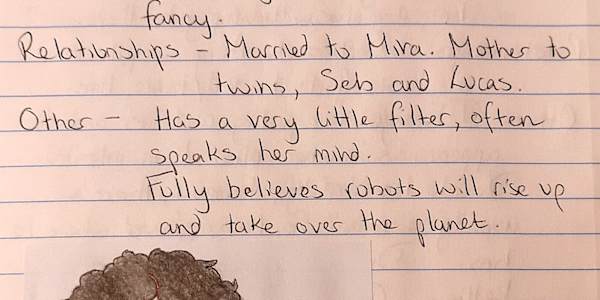 fancy.
Relationships - Married to Mira. Mother to
twins, Seb and Lucas.
Other - Has a very little filter, often
speaks her mind.
Fully believes robots will rise up
and take over the planet.